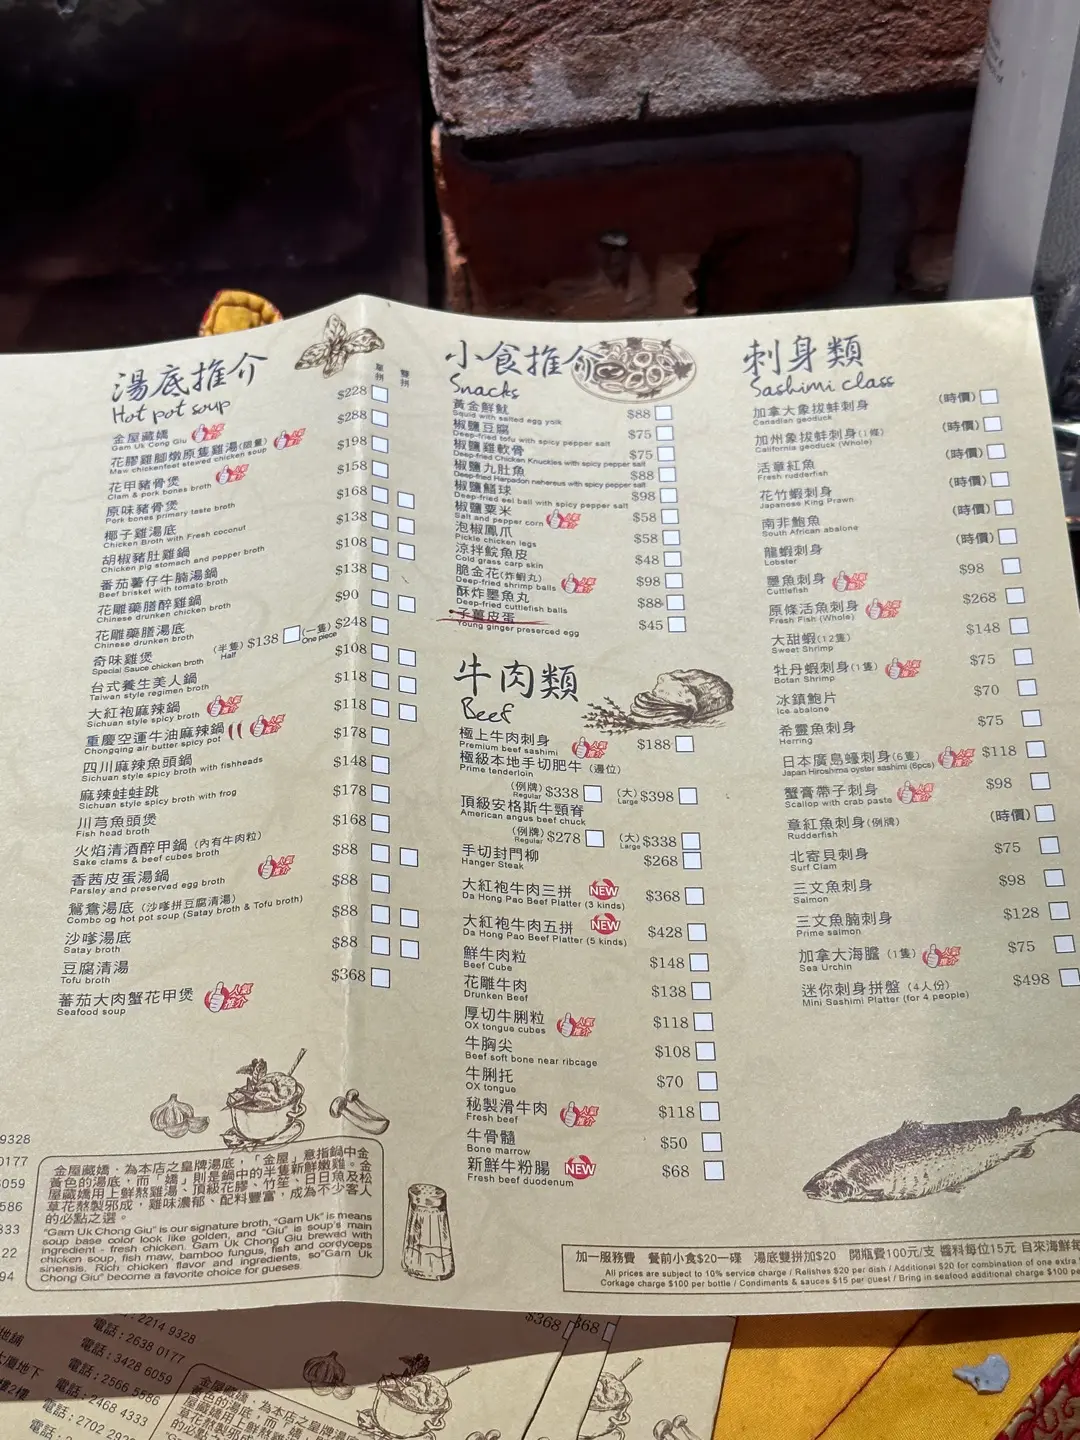 湯底推介
Hot pot soup
單拼
雙拼
金屋藏嬌 $228
Gam Uk Cong Giu
人氣推介
花膠雞腳燉原隻雞湯(限量) $288
Maw chickenfeet stewed chicken soup
人氣推介
花甲豬骨煲 $198
Clam & pork bones broth
人氣推介
原味豬骨煲 $158
Pork bones primary taste broth
椰子雞湯底 $168
Chicken Broth with Fresh coconut
胡椒豬肚雞鍋 $138
Chicken pig stomach and pepper broth
番茄薯仔牛腩湯鍋 $108
Beef brisket with tomato broth
花雕藥膳醉雞鍋 $138
Chinese drunken chicken broth
花雕藥膳湯底 $90
Chinese drunken broth
奇味雞煲 (半隻) $138 (一隻) $248
Special Sauce chicken broth Half One piece
台式養生美人鍋 $108
Taiwan style regimen broth
大紅袍麻辣鍋 $118
Sichuan style spicy broth
人氣推介
重慶空運牛油麻辣鍋 $118
Chongqing air butter spicy pot
人氣推介
四川麻辣魚頭鍋 $178
Sichuan style spicy broth with fishheads
麻辣蛙蛙跳 $148
Sichuan style spicy broth with frog
川芎魚頭煲 $178
Fish head broth
火焰清酒醉甲鍋 (內有牛肉粒) $168
Sake clams & beef cubes broth
香茜皮蛋湯鍋 $88
Parsley and preserved egg broth
人氣推介
鴛鴦湯底 (沙嗲拼豆腐清湯) $88
Combo og hot pot soup (Satay broth & Tofu broth)
沙嗲湯底 $88
Satay broth
豆腐清湯 $88
Tofu broth
蕃茄大肉蟹花甲煲 $368
Seafood soup
人氣推介
金屋藏嬌，為本店之皇牌湯底，「金屋」意指鍋中金
黃色的湯底，而「嬌」則是鍋中的半隻新鮮嫩雞。金
屋藏嬌用上鮮熬雞湯、頂級花膠、竹笙、日日魚及松
草花熬製邪成，雞味濃郁、配料豐富，成為不少客人
的必點之選。
"Gam Uk Chong Giu" is our signature broth, "Gam Uk" is means
soup base color look like golden, and "Giu" is soup's main
ingredient - fresh chicken. Gam Uk Chong Giu brewed with
chicken soup, fish maw, bamboo fungus, fish and cordyceps
sinensis. Rich chicken flavor and ingredients, so"Gam Uk
Chong Giu" become a favorite choice for gueses.
小食推介
Snacks
黃金鮮魷 $88
Squid with salted egg yolk
椒鹽豆腐 $75
Deep-fried tofu with spicy pepper salt
椒鹽雞軟骨 $75
Deep-fried Chicken Knuckles with spicy pepper salt
椒鹽九肚魚 $88
Deep-fried Harpadon nehereus with spicy pepper salt
椒鹽鱔球 $98
Deep-fried eel ball with spicy pepper salt
椒鹽粟米 $58
Salt and pepper corn
人氣推介
泡椒鳳爪 $58
Pickle chicken legs
涼拌鯇魚皮 $48
Cold grass carp skin
脆金花(炸蝦丸) $98
Deep-fried shrimp balls
人氣推介
酥炸墨魚丸 $88
Deep-fried cuttlefish balls
子薑皮蛋 $45
Young ginger preserced egg
牛肉類
Beef
極上牛肉刺身 $188
Premium beef sashimi
人氣推介
極級本地手切肥牛 (邊位)
Prime tenderloin
(例牌) $338 (大) $398
Regular Large
頂級安格斯牛頸脊
American angus beef chuck
(例牌) $278 (大) $338
Regular Large
手切封門柳 $268
Hanger Steak
大紅袍牛肉三拼 NEW $368
Da Hong Pao Beef Platter (3 kinds)
大紅袍牛肉五拼 NEW $428
Da Hong Pao Beef Platter (5 kinds)
鮮牛肉粒 $148
Beef Cube
花雕牛肉 $138
Drunken Beef
厚切牛脷粒 $118
OX tongue cubes
人氣推介
牛胸尖 $108
Beef soft bone near ribcage
牛脷托 $70
OX tongue
秘製滑牛肉 $118
Fresh beef
人氣推介
牛骨髓 $50
Bone marrow
新鮮牛粉腸 NEW $68
Fresh beef duodenum
刺身類
Sashimi class
加拿大象拔蚌刺身 (時價)
Canadian geoduck
加州象拔蚌刺身(1條) (時價)
California geoduck (Whole)
活章紅魚 (時價)
Fresh rudderfish
花竹蝦刺身 (時價)
Japanese King Prawn
南非鮑魚 (時價)
South African abalone
龍蝦刺身 (時價)
Lobster
墨魚刺身 $98
Cuttlefish
人氣推介
原條活魚刺身 $268
Fresh Fish (Whole)
人氣推介
大甜蝦(12隻) $148
Sweet Shrimp
牡丹蝦刺身(1隻) $75
Botan Shrimp
人氣推介
冰鎮鮑片 $70
Ice abalone
希靈魚刺身 $75
Herring
日本廣島蠔刺身(6隻) $118
Japan Hiroshima oyster sashimi (6pcs)
人氣推介
蟹膏帶子刺身 $98
Scallop with crab paste
人氣推介
章紅魚刺身(例牌) (時價)
Rudderfish
北寄貝刺身 $75
Surf Clam
三文魚刺身 $98
Salmon
三文魚腩刺身 $128
Prime salmon
加拿大海膽 (1隻) $75
Sea Urchin
人氣推介
迷你刺身拼盤 (4人份) $498
Mini Sashimi Platter (for 4 people)
加一服務費 餐前小食$20一碟 湯底雙拼加$20 開瓶費100元/支 醬料每位15元 自來海鮮每
All prices are subject to 10% service charge / Relishes $20 per dish / Additional $20 for combination of one extra
Corkage charge $100 per bottle / Condiments & sauces $15 per guest / Bring in seafood additional charge $100 per
9328
0177
6059
586
333
22
94
電話：2214 9328
電話：2638 0177
電話：3428 6059
電話：2566 5586
電話：2468 4333
電話：2702 292
地舖
大廈地下
樓2樓
$368
368
金屋藏嬌，為本店之皇牌湯